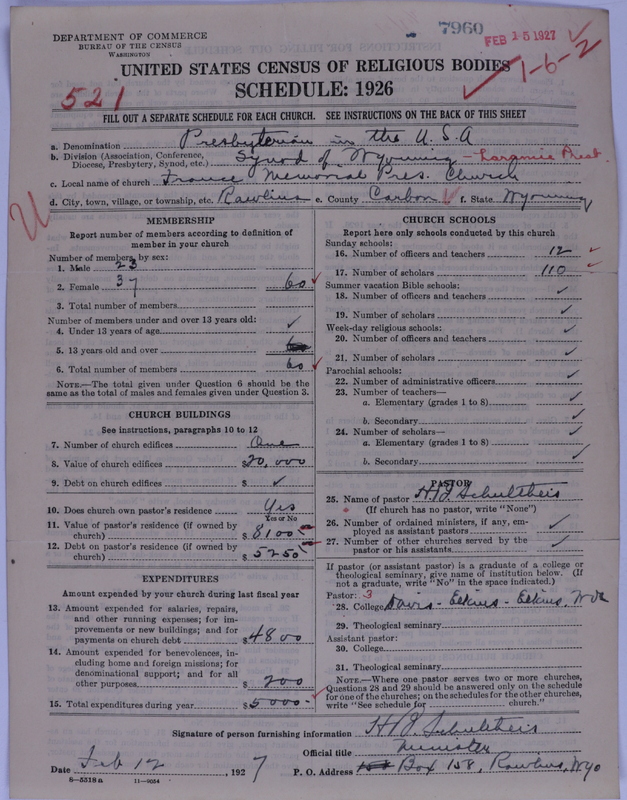 7960
FEB 15 1927
1-6-2
DEPARTMENT OF COMMERCE
BUREAU OF THE CENSUS
WASHINGTON
UNITED STATES CENSUS OF RELIGIOUS BODIES
SCHEDULE: 1926
521
FILL OUT A SEPARATE SCHEDULE FOR EACH CHURCH. SEE INSTRUCTIONS ON THE BACK OF THIS SHEET
a. Denomination Presbyterian in the U.S.A
b. Division (Association, Conference, Diocese, Presbytery, Synod, etc.) Synod of Wyoming - Laramie Presb.
c. Local name of church France Memorial Pres. Church
d. City, town, village, or township, etc. Rawlins e. County Carbon f. State Wyoming
U
MEMBERSHIP
Report number of members according to definition of
member in your church
Number of members by sex:
1. Male 23
2. Female 37 60
3. Total number of members
Number of members under and over 13 years old:
4. Under 13 years of age
5. 13 years old and over
6. Total number of members 60
NOTE.—The total given under Question 6 should be the
same as the total of males and females given under Question 3.
CHURCH BUILDINGS
See instructions, paragraphs 10 to 12
7. Number of church edifices One
8. Value of church edifices $20,000
9. Debt on church edifices $
10. Does church own pastor's residence Yes
Yes or No
11. Value of pastor's residence (if owned by
church) $8100
12. Debt on pastor's residence (if owned by
church) $5250
EXPENDITURES
Amount expended by your church during last fiscal year
13. Amount expended for salaries, repairs,
and other running expenses; for im-
provements or new buildings; and for
payments on church debt $4800
14. Amount expended for benevolences, in-
cluding home and foreign missions; for
denominational support; and for all
other purposes $200
15. Total expenditures during year $5000-
CHURCH SCHOOLS
Report here only schools conducted by this church
Sunday schools:
16. Number of officers and teachers 12
17. Number of scholars 110
Summer vacation Bible schools:
18. Number of officers and teachers
19. Number of scholars
Week-day religious schools:
20. Number of officers and teachers
21. Number of scholars
Parochial schools:
22. Number of administrative officers
23. Number of teachers—
a. Elementary (grades 1 to 8)
b. Secondary
24. Number of scholars—
a. Elementary (grades 1 to 8)
b. Secondary
PASTOR
25. Name of pastor H J Schultheis
(If church has no pastor, write "None")
26. Number of ordained ministers, if any, em-
ployed as assistant pastors
27. Number of other churches served by the
pastor or his assistants
If pastor (or assistant pastor) is a graduate of a college or
theological seminary, give name of institution below. (If
not a graduate, write "No" in the space indicated.)
Pastor: 3
28. College Davis-Elkins-Elkins, W Va
29. Theological seminary
Assistant pastor:
30. College
31. Theological seminary
NOTE.—Where one pastor serves two or more churches,
Questions 28 and 29 should be answered only on the schedule
for one of the churches; on the schedules for the other churches,
write "See schedule for church."
Signature of person furnishing information H J Schultheis
Official title Minister
Date Feb 12, 1927 P. O. Address Box 158, Rawlins, Wyo
8-5518 a 11-9054